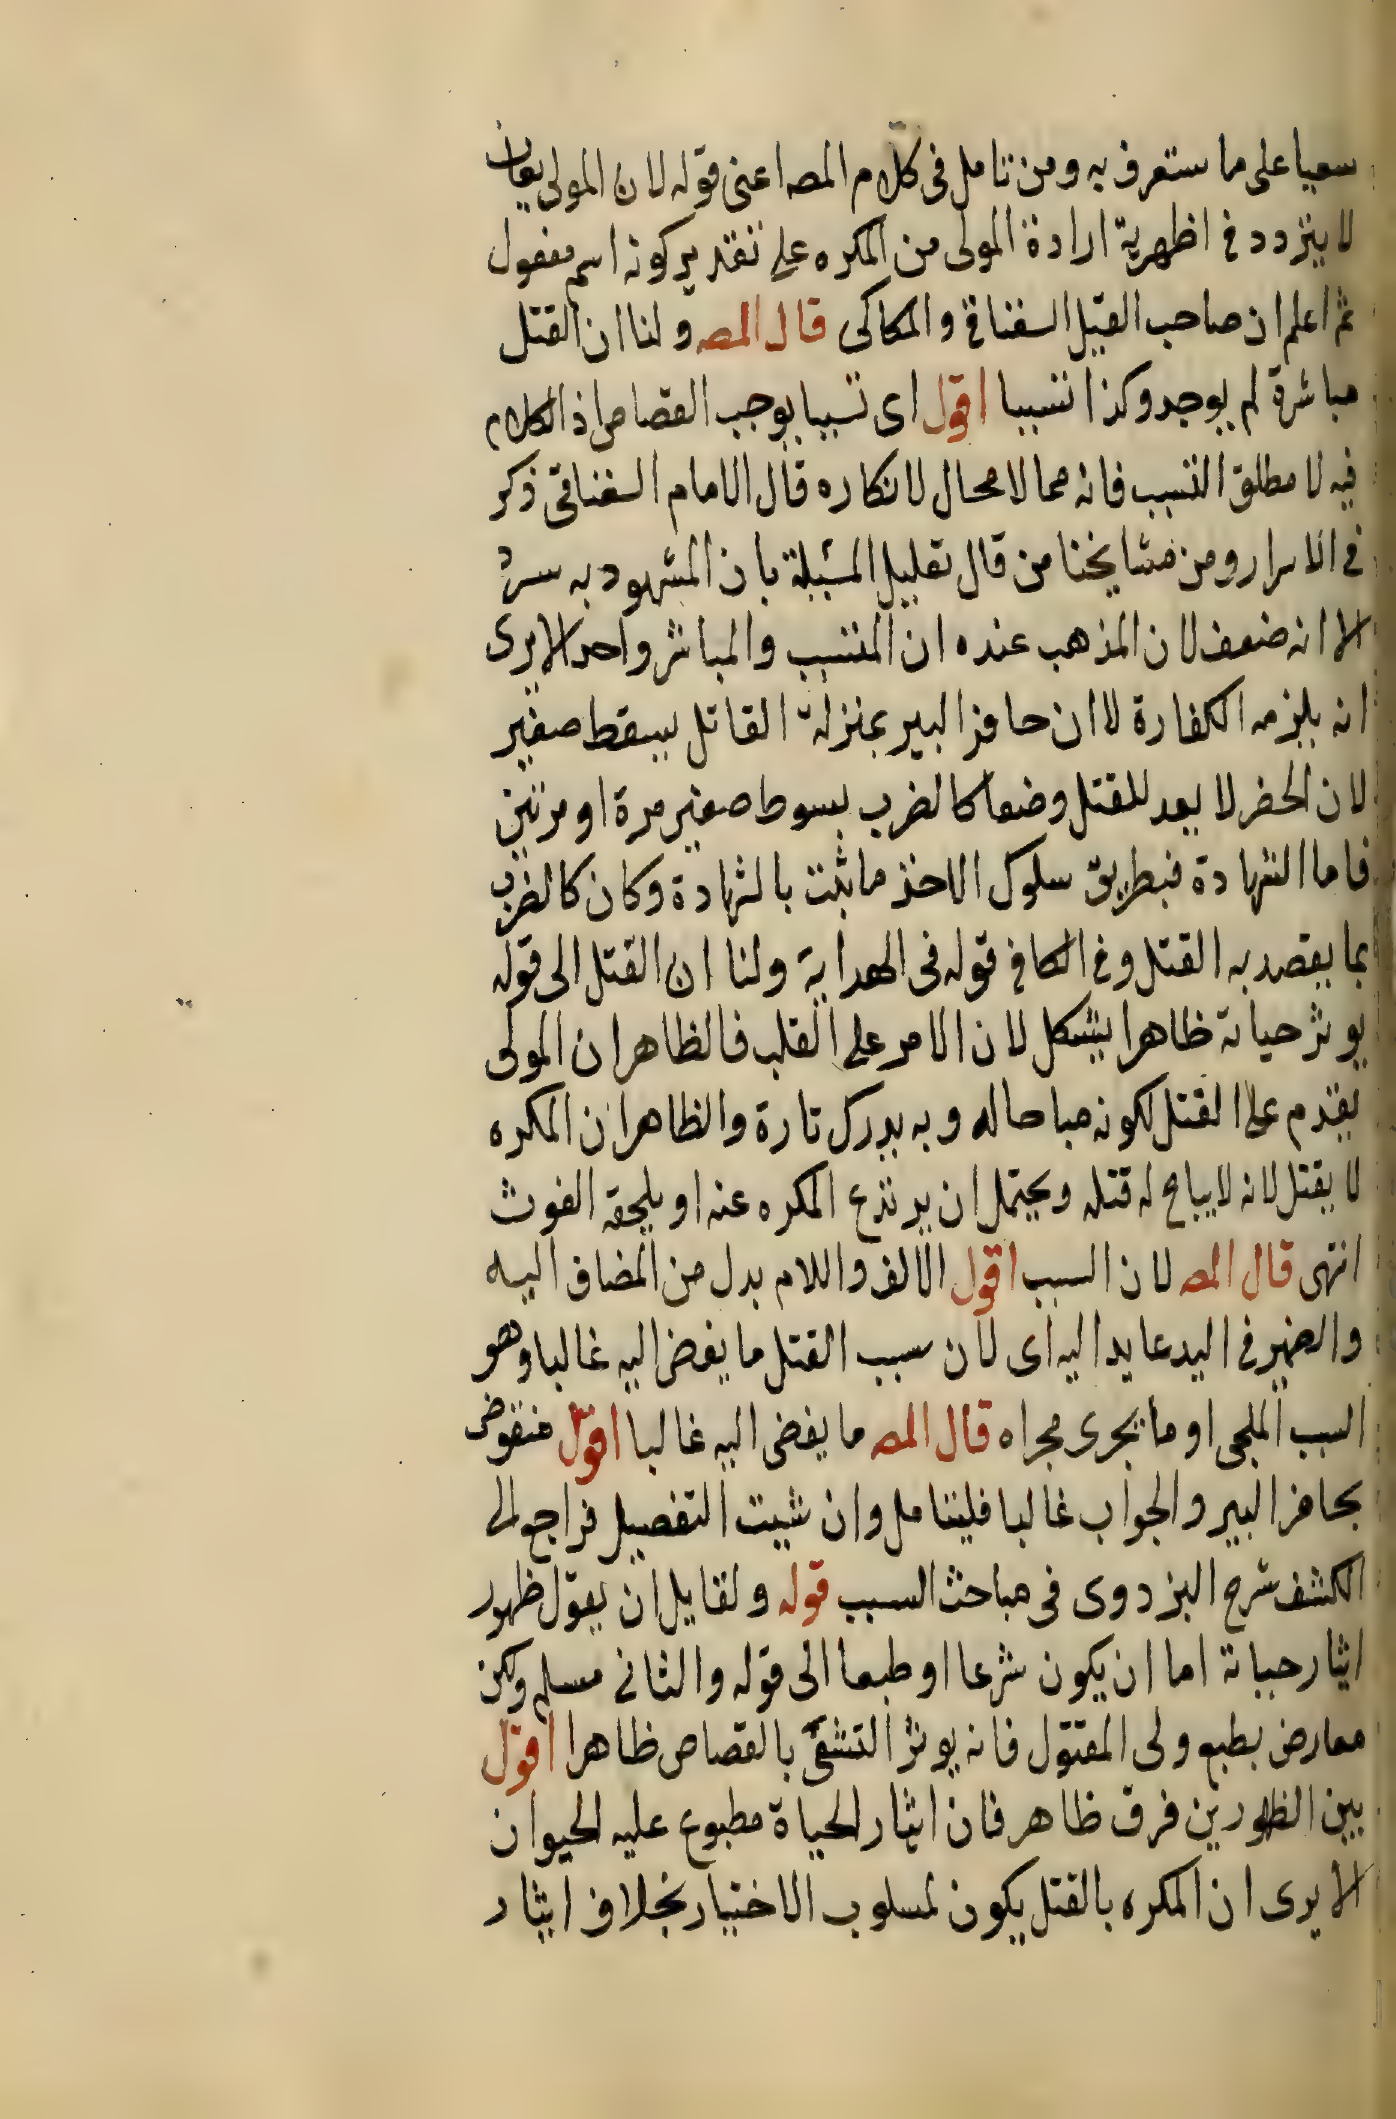 سعيا على ما ستعرف به ومن تامل فى كلام المصه اعنى قوله لان المولى يعان
لا يتردد فى اظهرية ارادة المولى من المكره على تقدير كونه اسم مفعول
ثم اعلم ان صاحب القيل السغناقى والكاكى قال المصه ولنا ان القتل
مباشرة لم يوجد وكذا تسببا اقول اى تسببا يوجب القصاص اذ الكلام
فيه لا مطلق التسبب فانه مما لا محال لانكاره قال الامام السغناقى ذكر
فى الاسرار ومن مشايخنا من قال تعليل المسئلة بان المشهود به
الا انه ضعف لان المذهب عنده ان المتسبب والمباشر واحد الا يرى
انه يلزمه الكفارة لا ان حافر البير بمنزلة القاتل بسقط صغير
لان الحفر لا يعد للقتل وضعا كالضرب بسوط صغير مرة او مرتين
فاما الشهادة فبطريق سلوك الاخذ ما يثبت بالشهادة وكان كالضرب
بما يقصد به القتل وفى الكافى قوله فى الهداية ولنا ان القتل الى قوله
يوثر حياته ظاهرا يشكل لان الامر على القلب فالظاهر ان المولى
يقدم على القتل لكونه مباحا له وبه يدرك تارة والظاهر ان المكره
لا يقتل لانه لا يباح له قتله ويحتمل ان يرتدع المكره عنه او يلحقه الغوث
انتهى قال المصه لان السبب اقول الالف واللام بدل من المضاف اليه
والضمير فى اليه عايد اليه اى لان سبب القتل ما يفضى اليه غالبا وهو
السبب الملجى او ما يجرى مجراه قال المصه ما يفضى اليه غالبا اقول منقوض
بحافر البير والجواب غالبا فليتامل وان شيت التفصيل فراجع الى
الكشف شرح البزدوى فى مباحث السبب قوله ولقايل ان يقول ظهور
ايثار حياته اما ان يكون شرعا او طبعا الى قوله والثانى مسلم ولكن
معارض بطبع ولى المقتول فانه يوثر التشفى بالقصاص ظاهرا اقول
بين الظهورين فرق ظاهر فان ايثار الحياة مطبوع عليه الحيوان
الا يرى ان المكره بالقتل يكون لمسلوب الاختيار بخلاف ايثار